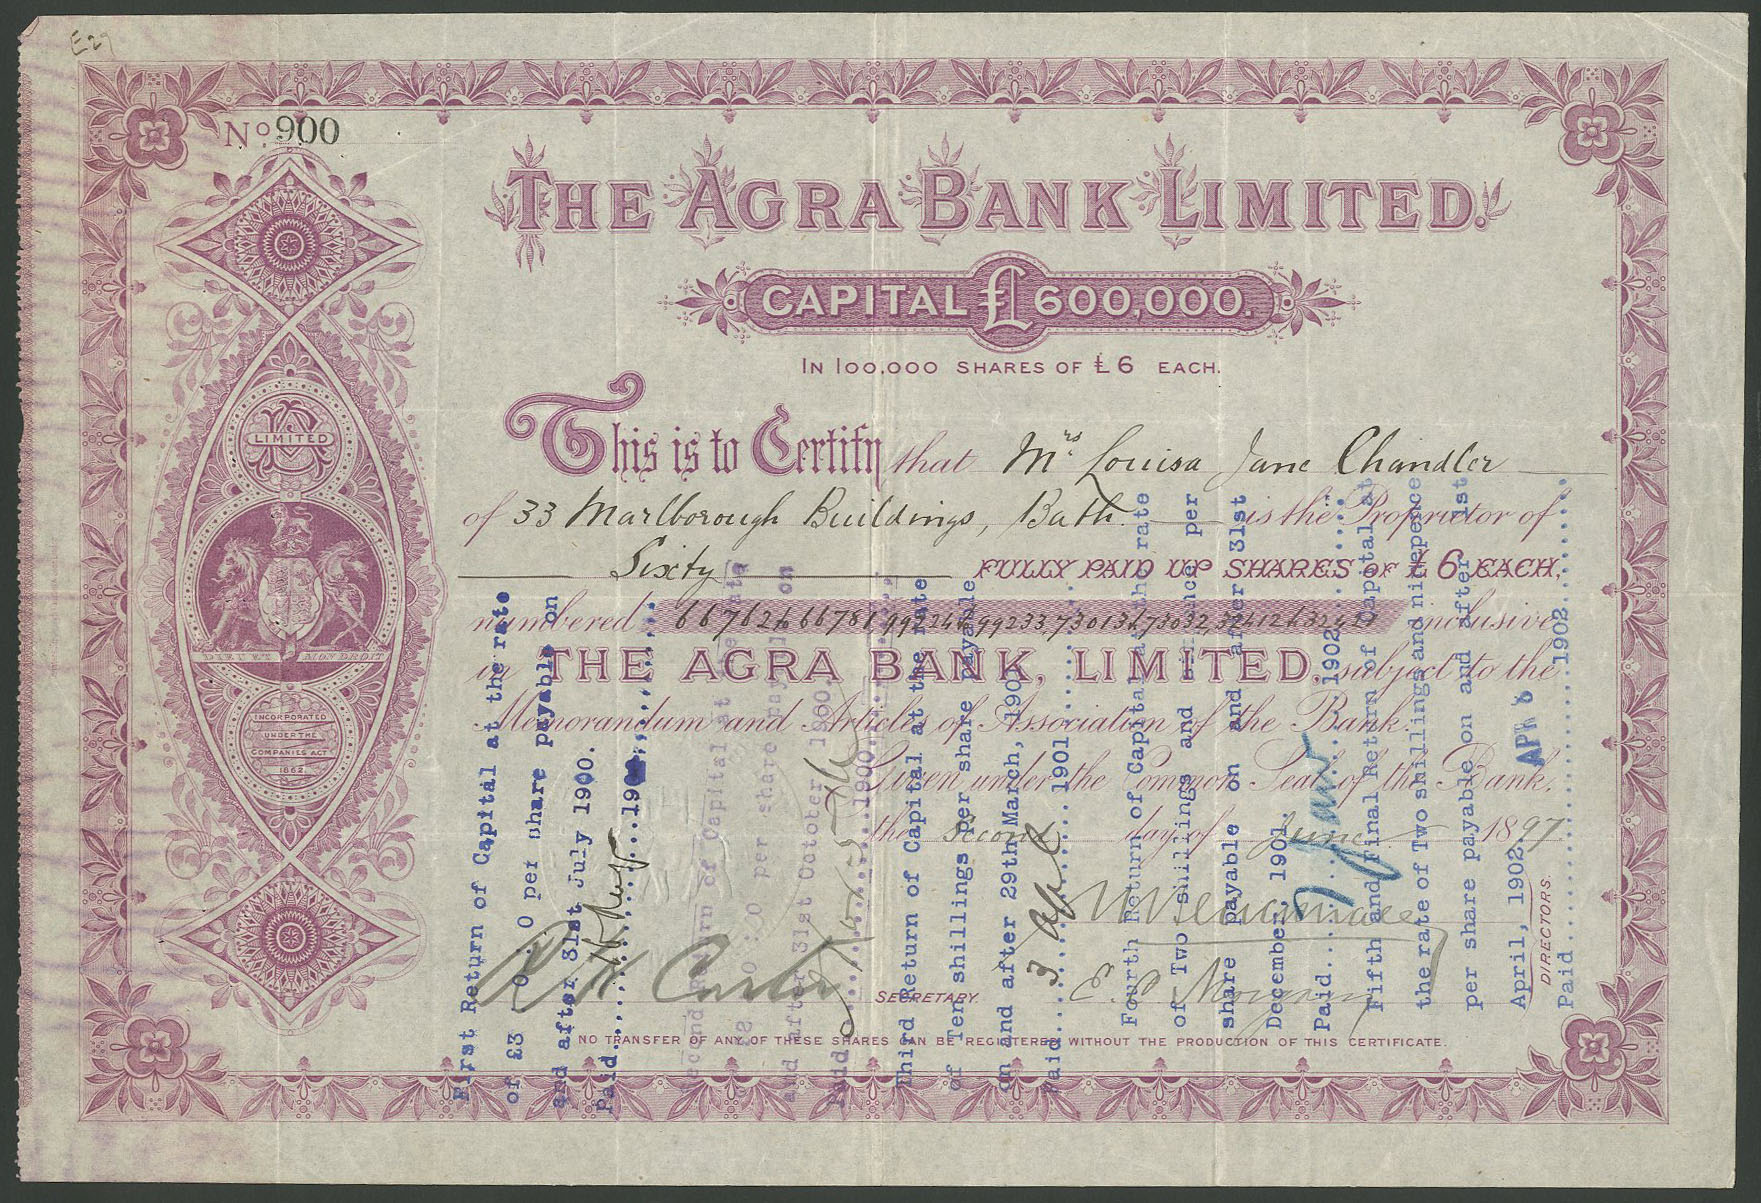 E29
No 900
THE AGRA BANK LIMITED.
CAPITAL £600,000.
IN 100,000 SHARES OF £6 EACH.
This is to Certify that Mrs Louisa Jane Chandler
of 33 Marlborough Buildings, Bath. is the Proprietor of
Sixty FULLY PAID UP SHARES OF £6 EACH,
numbered 66762 to 66781, 99224 to 99233, 73013 to 73032, inclusive
in THE AGRA BANK, LIMITED, subject to the
Memorandum and Articles of Association of the Bank.
Given under the Common Seal of the Bank,
the Second day of June 1897
DIRECTORS.
R H Carter SECRETARY.
E. C. Morgan
NO TRANSFER OF ANY OF THESE SHARES CAN BE REGISTERED WITHOUT THE PRODUCTION OF THIS CERTIFICATE.
LIMITED
DIEU ET MON DROIT
INCORPORATED
UNDER THE
COMPANIES ACT
1862
First Return of Capital at the rate
of £3 : 0 : 0 per share payable on
and after 31st July 1900.
Paid
Second Return of Capital at the rate
per share payable on
and after 31st October 1900.
Paid 1900
Third Return of Capital at the rate
of Ten shillings per share payable
on and after 29th March, 1901
Paid 3 April 1901
Fourth Return of Capital at the rate
of Two shillings and sixpence per
share payable on and after 31st
December, 1901.
Paid 7 Jan 1902
Fifth and Final Return of Capital at
the rate of Two shillings and ninepence
per share payable on and after 1st
April, 1902. APR 8
Paid 1902